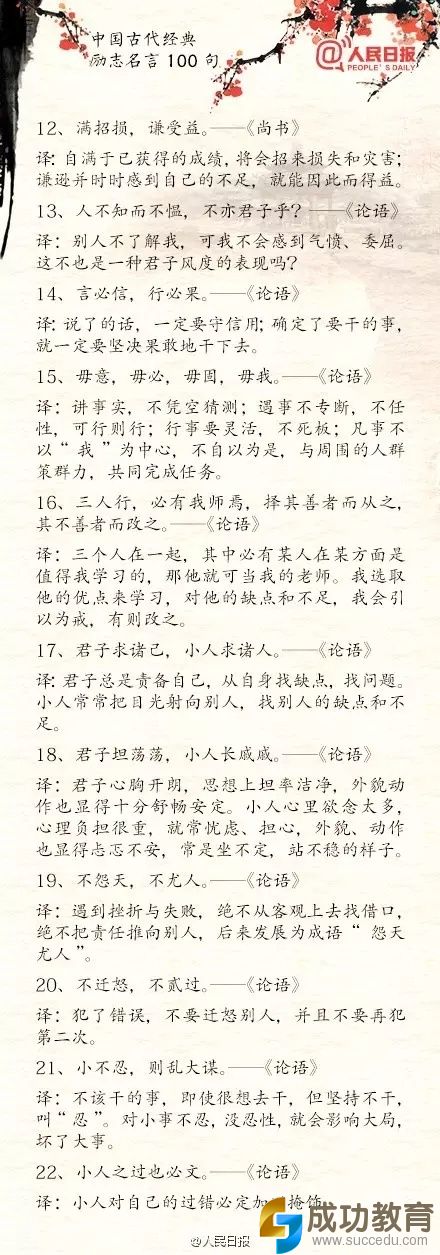 中国古代经典
励志名言100句
@人民日报
PEOPLE'S DAILY
12、满招损，谦受益。——《尚书》
译：自满于已获得的成绩，将会招来损失和灾害；
谦逊并时时感到自己的不足，就能因此而得益。
13、人不知而不愠，不亦君子乎？——《论语》
译：别人不了解我，可我不会感到气愤、委屈。
这不也是一种君子风度的表现吗？
14、言必信，行必果。——《论语》
译：说了的话，一定要守信用；确定了要干的事，
就一定要坚决果敢地干下去。
15、毋意，毋必，毋固，毋我。——《论语》
译：讲事实，不凭空猜测；遇事不专断，不任
性，可行则行；行事要灵活，不死板；凡事不
以“我”为中心，不自以为是，与周围的人群
策群力，共同完成任务。
16、三人行，必有我师焉，择其善者而从之，
其不善者而改之。——《论语》
译：三个人在一起，其中必有某人在某方面是
值得我学习的，那他就可当我的老师。我选取
他的优点来学习，对他的缺点和不足，我会引
以为戒，有则改之。
17、君子求诸己，小人求诸人。——《论语》
译：君子总是责备自己，从自身找缺点，找问题。
小人常常把目光射向别人，找别人的缺点和不
足。
18、君子坦荡荡，小人长戚戚。——《论语》
译：君子心胸开朗，思想上坦率洁净，外貌动
作也显得十分舒畅安定。小人心里欲念太多，
心理负担很重，就常忧虑、担心，外貌、动作
也显得忐忑不安，常是坐不定，站不稳的样子。
19、不怨天，不尤人。——《论语》
译：遇到挫折与失败，绝不从客观上去找借口，
绝不把责任推向别人，后来发展为成语“怨天
尤人”。
20、不迁怒，不贰过。——《论语》
译：犯了错误，不要迁怒别人，并且不要再犯
第二次。
21、小不忍，则乱大谋。——《论语》
译：不该干的事，即使很想去干，但坚持不干，
叫“忍”。对小事不忍，没忍性，就会影响大局，
坏了大事。
22、小人之过也必文。——《论语》
译：小人对自己的过错必定加以掩饰
@人民日报
成功教育
www.succedu.com